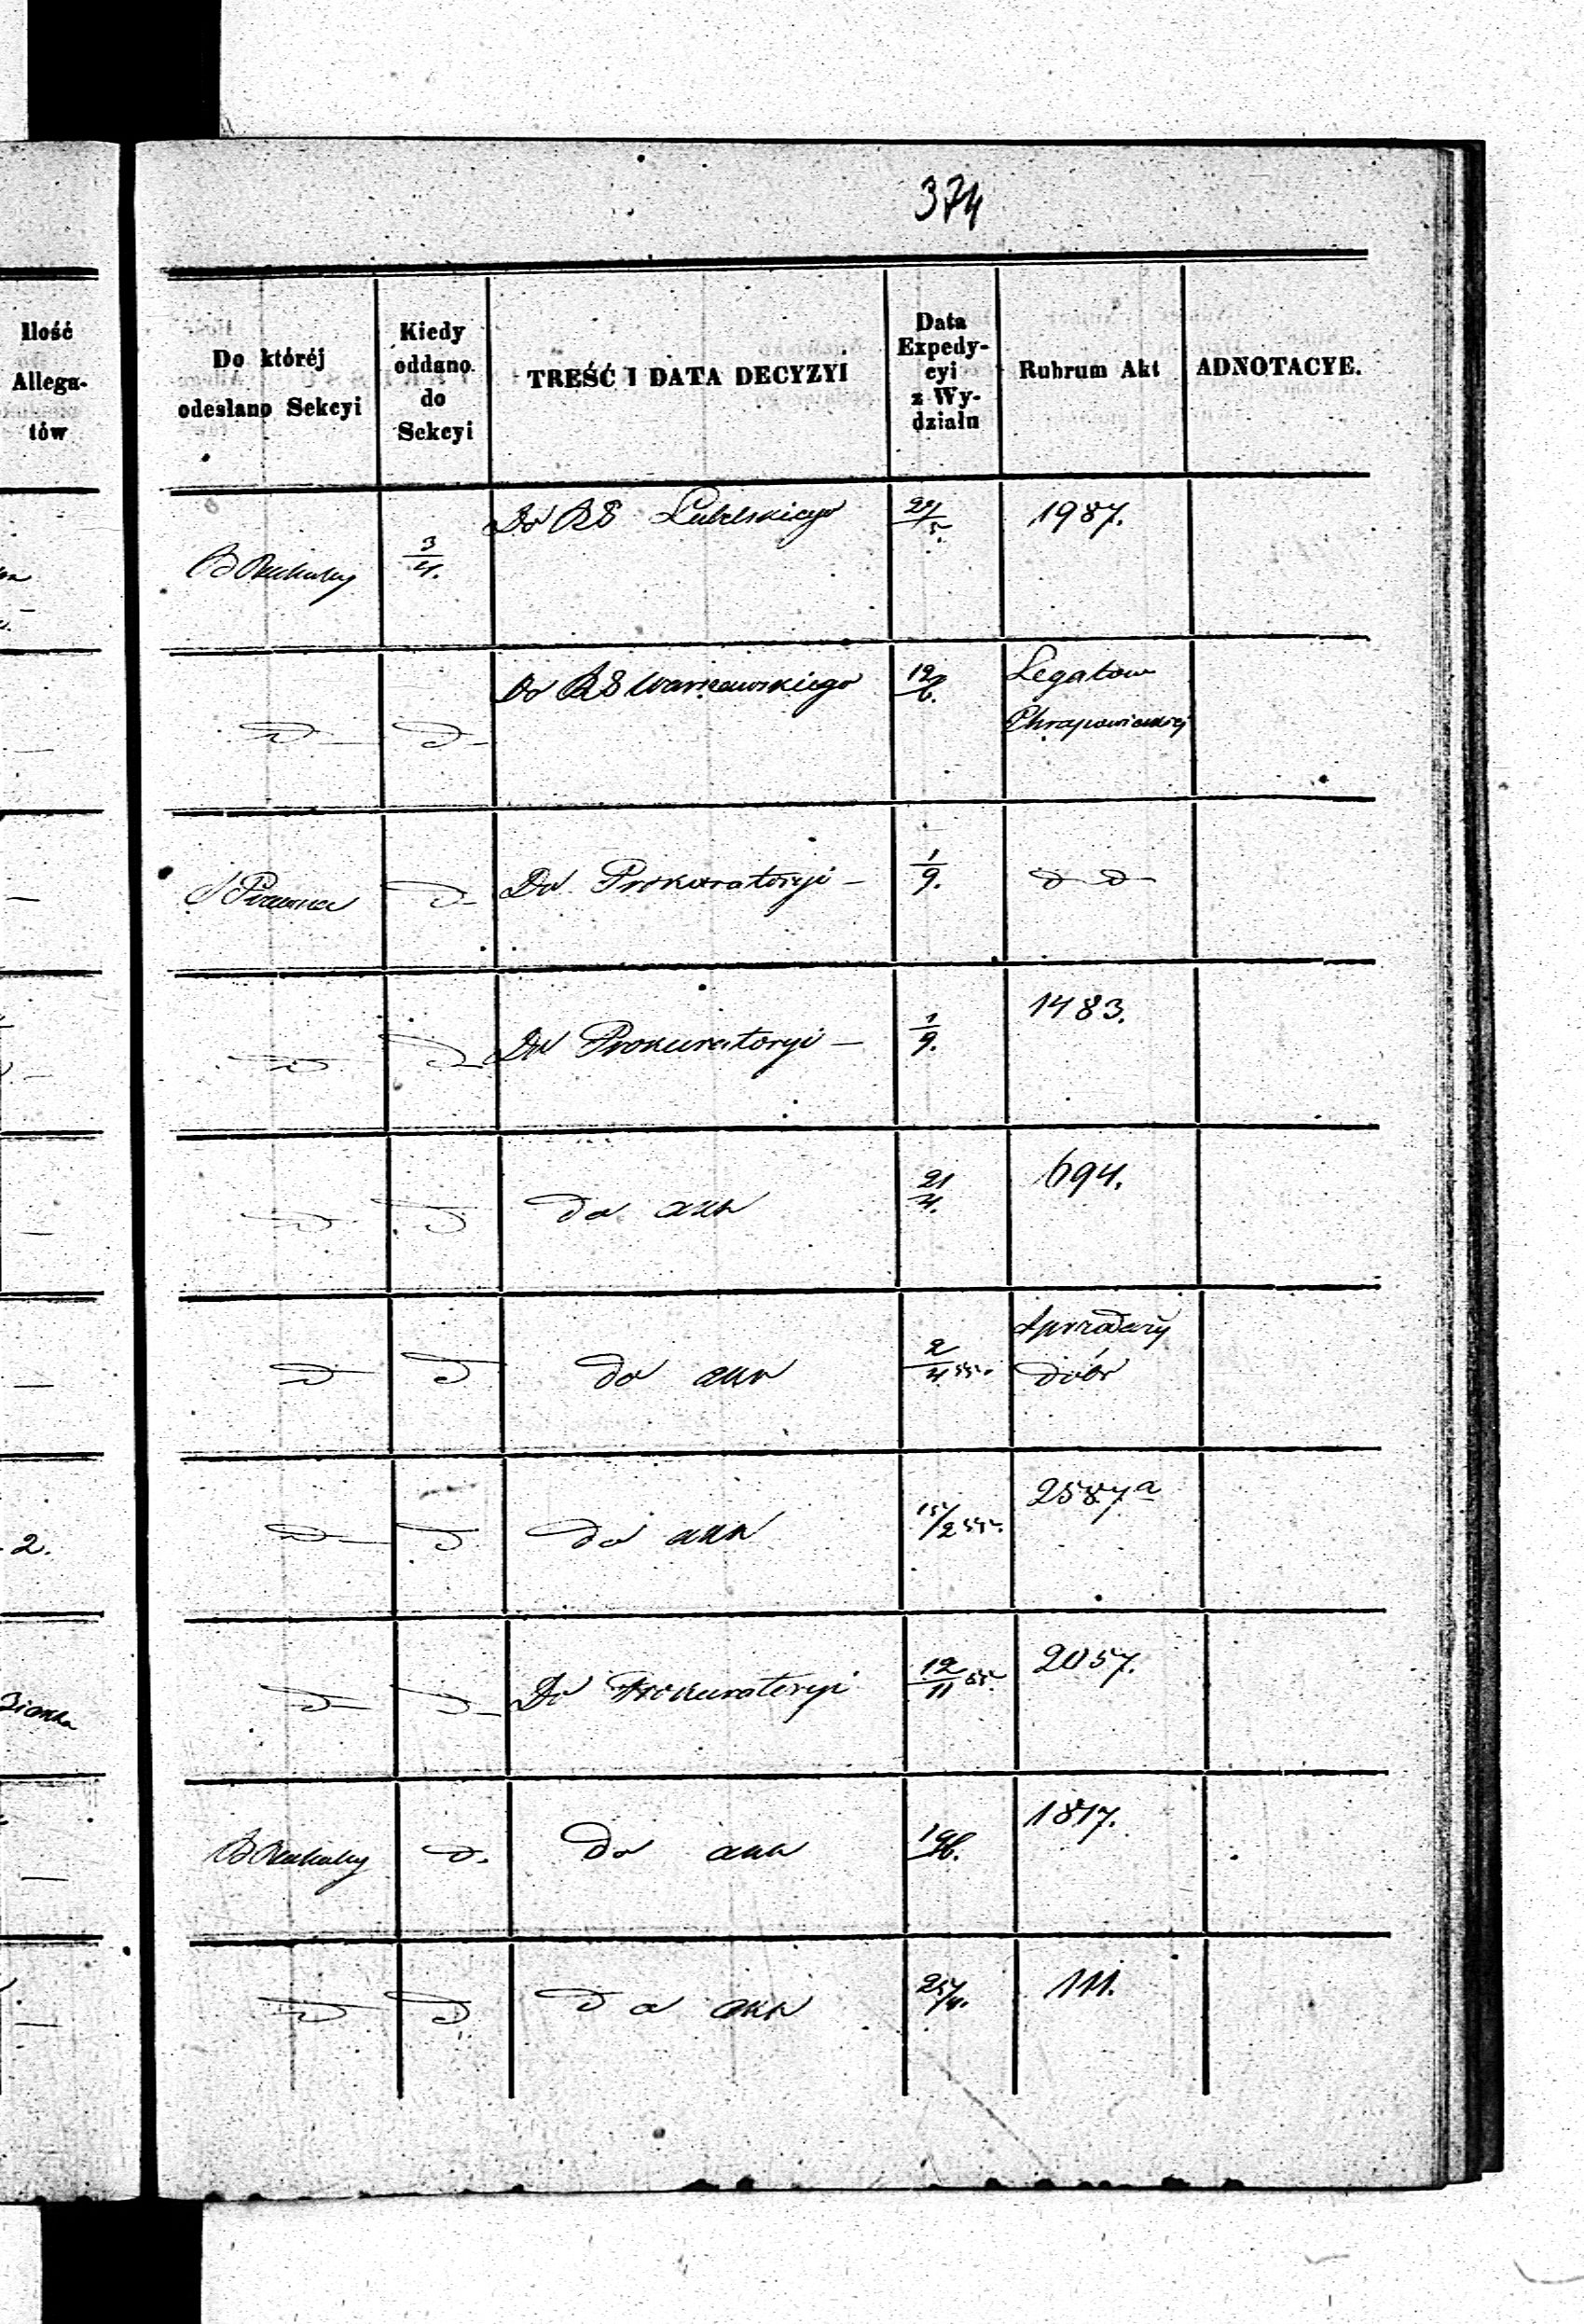 374
Ilość
Allega-
tów
Do któréj
odesłano Sekcyi
Kiedy
oddano
do
Sekcyi
TREŚĆ I DATA DECYZYI
Data
Expedy-
cyi
z Wy-
działu
Rubrum Akt
ADNOTACYE.
3/4.
Do RG Lubelskiego
29/5.
1987.
Do RG Warszawskiego
12/6.
Legatow
Chrapowickiej
S Prawna
Do Prokuratoryi —
1/9.
Do Prokuratoryi —
1/9.
1483.
do akt
21/4.
694.
do akt
2/4 55.
Sprzedaży
dóbr
2.
do akt
15/2 55.
2587a
Do Prokuratoryi
12/11 55.
2057.
do akt
19/6.
1817.
do akt
25/4.
111.